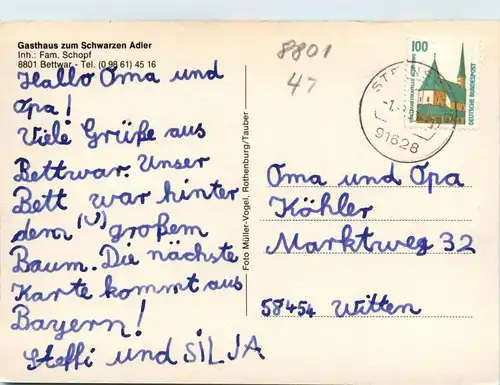 Gasthaus zum Schwarzen Adler
Inh.: Fam. Schopf
8801 Bettwar - Tel. (0 98 61) 45 16
Hallo Oma und
Opa!
Viele Grüße aus
Bettwar. Unser
Bett war hinter
dem (U) großem
Baum. Die nächste
Karte kommt aus
Bayern!
Steffi und SILJA
Foto Müller-Vogel, Rothenburg/Tauber
8801
47
100
DEUTSCHE BUNDESPOST
91628
Oma und Opa
Köhler
Marktweg 32
58454 Witten